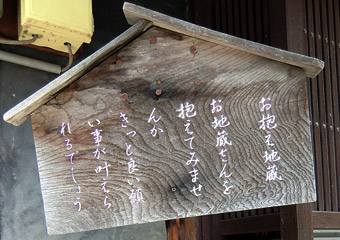 お抱え地蔵
お地蔵さんを
抱えてみませ
んか
きっと良い願
い事が叶えら
れるでしょう